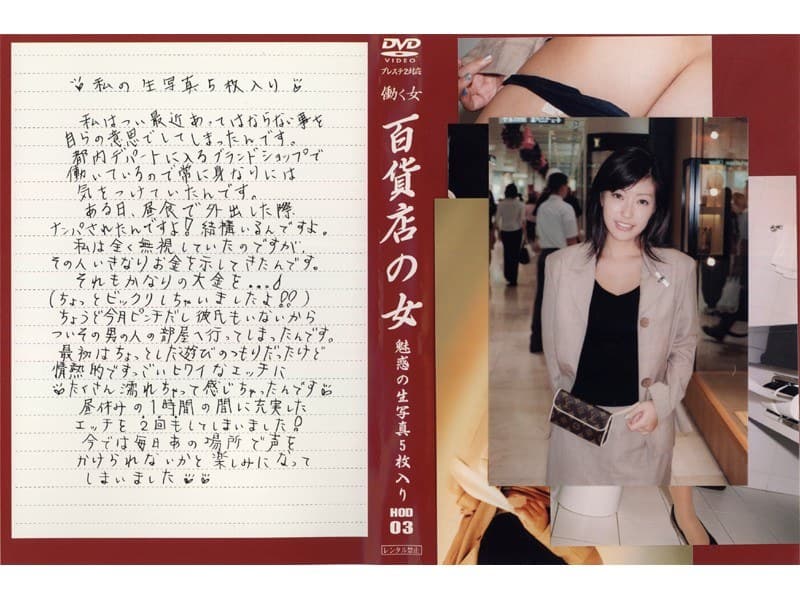 私の生写真5枚入り
私はつい最近あってはならない事を
自らの意思でしてしまったんです。
都内デパートに入るブランドショップで
働いているので常に身なりには
気をつけていたんです。
ある日、昼食で外出した際
ナンパされたんですよ!結構いるんですよ。
私は全く無視していたのですが、
その人いきなりお金を示してきたんです。
それもかなりの大金を…!
(ちょっとビックリしちゃいましたよ!?)
ちょうど今月ピンチだし彼氏もいないから
ついその男の人の部屋へ行ってしまったんです。
最初はちょっとした遊びのつもりだったけど
情熱的ですっごいヒワイなエッチに
たくさん濡れちゃって感じちゃったんです
昼休みの1時間の間に充実した
エッチを2回もしてしまいました!
今では毎日あの場所で声を
かけられないかと楽しみになって
しまいました
DVD
VIDEO
プレステ2対応
働く女
百貨店の女
魅惑の生写真5枚入り
HOD
03
レンタル禁止